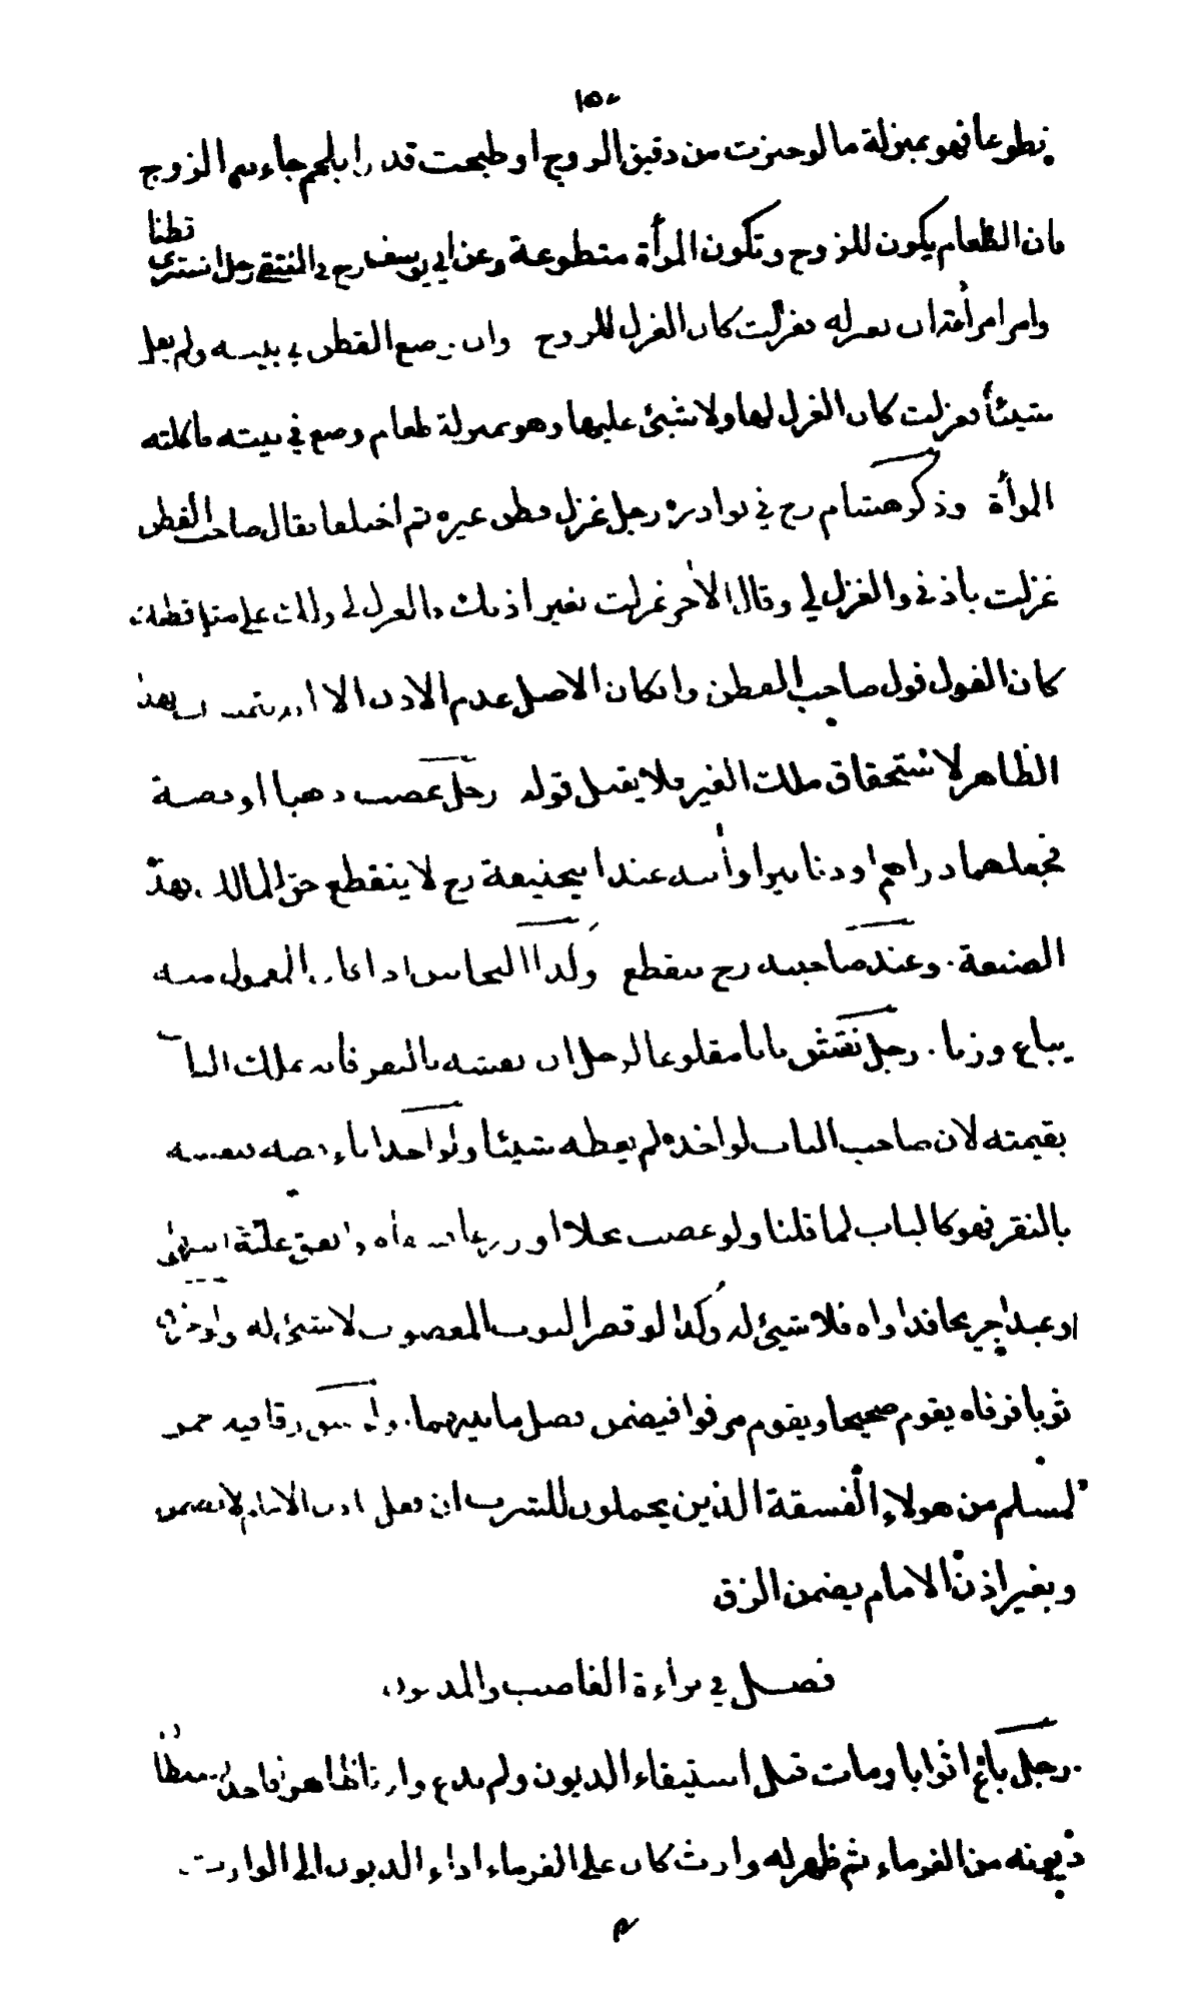 ١٥٠
تطوعا فهو بمنزلة ما لو خبزت من دقيق الزوج او طبخت قدرا بلحم جاء به الزوج
فان الطعام يكون للزوج وتكون المرأة متطوعة وعن ابي يوسف رح في المنتقى رجل اشترى قطنا
وامر امرأته ان تغزله فغزلت كان الغزل للزوج وان وضع القطن في بيته ولم يقل
شيئا فغزلت كان الغزل لها ولا شيئ عليها وهو بمنزلة طعام وضع في بيته فاكلته
المرأة وذكر هشام رح في نوادره رجل غزل قطن غيره ثم اختلفا فقال صاحب القطن
غزلت باذني والغزل لي وقال الآخر غزلت بغير اذنك والغزل لي ولك علي مثل قطنك
كان القول قول صاحب القطن وان كان الاصل عدم الاذن الا ان بهذا
الظاهر لاستحقاق ملك الغير فلا يقبل قوله رجل غصب ذهبا او فضة
فجعلهما دراهم او دنانير او آنية عند ابيحنيفة رح لا ينقطع حق المالك بهذه
الصنعة وعند صاحبيه رح ينقطع وكذا النحاس اذا كان المعمول منه
يباع وزنا رجل نقش بابا مقلوعا لرجل ان نقشه بالنقر فانه يملك الباب
بقيمته لان صاحب الباب لو اخذه لم يعطه شيئا ولو اخذ اناء فضة فنقشه
بالنقر فهو كالباب لما قلنا ولو غصب نخلا او زرعا فسقاه وانفق عليه انتهى
او عبدا جريحا فداواه فلا شيئ له وكذا لو قصر الثوب المغصوب لا شيئ له ولو خرق
ثوبا فرفاه يقوم صحيحا ويقوم مرفوا فيضمن فضل ما بينهما ولو شق زقا فيه خمر
لمسلم من هولاء الفسقة الذين يحملون للشرب ان فعل باذن الامام لا يضمن
وبغير اذن الامام يضمن الزق
فصل في براءة الغاصب والمديون
رجل باع اثوابا ومات قبل استيفاء الديون ولم يدع وارثا ظاهرا فاخذ السلطان
ديونه من الغرماء ثم ظهر له وارث كان على الغرماء اداء الديون الى الوارث